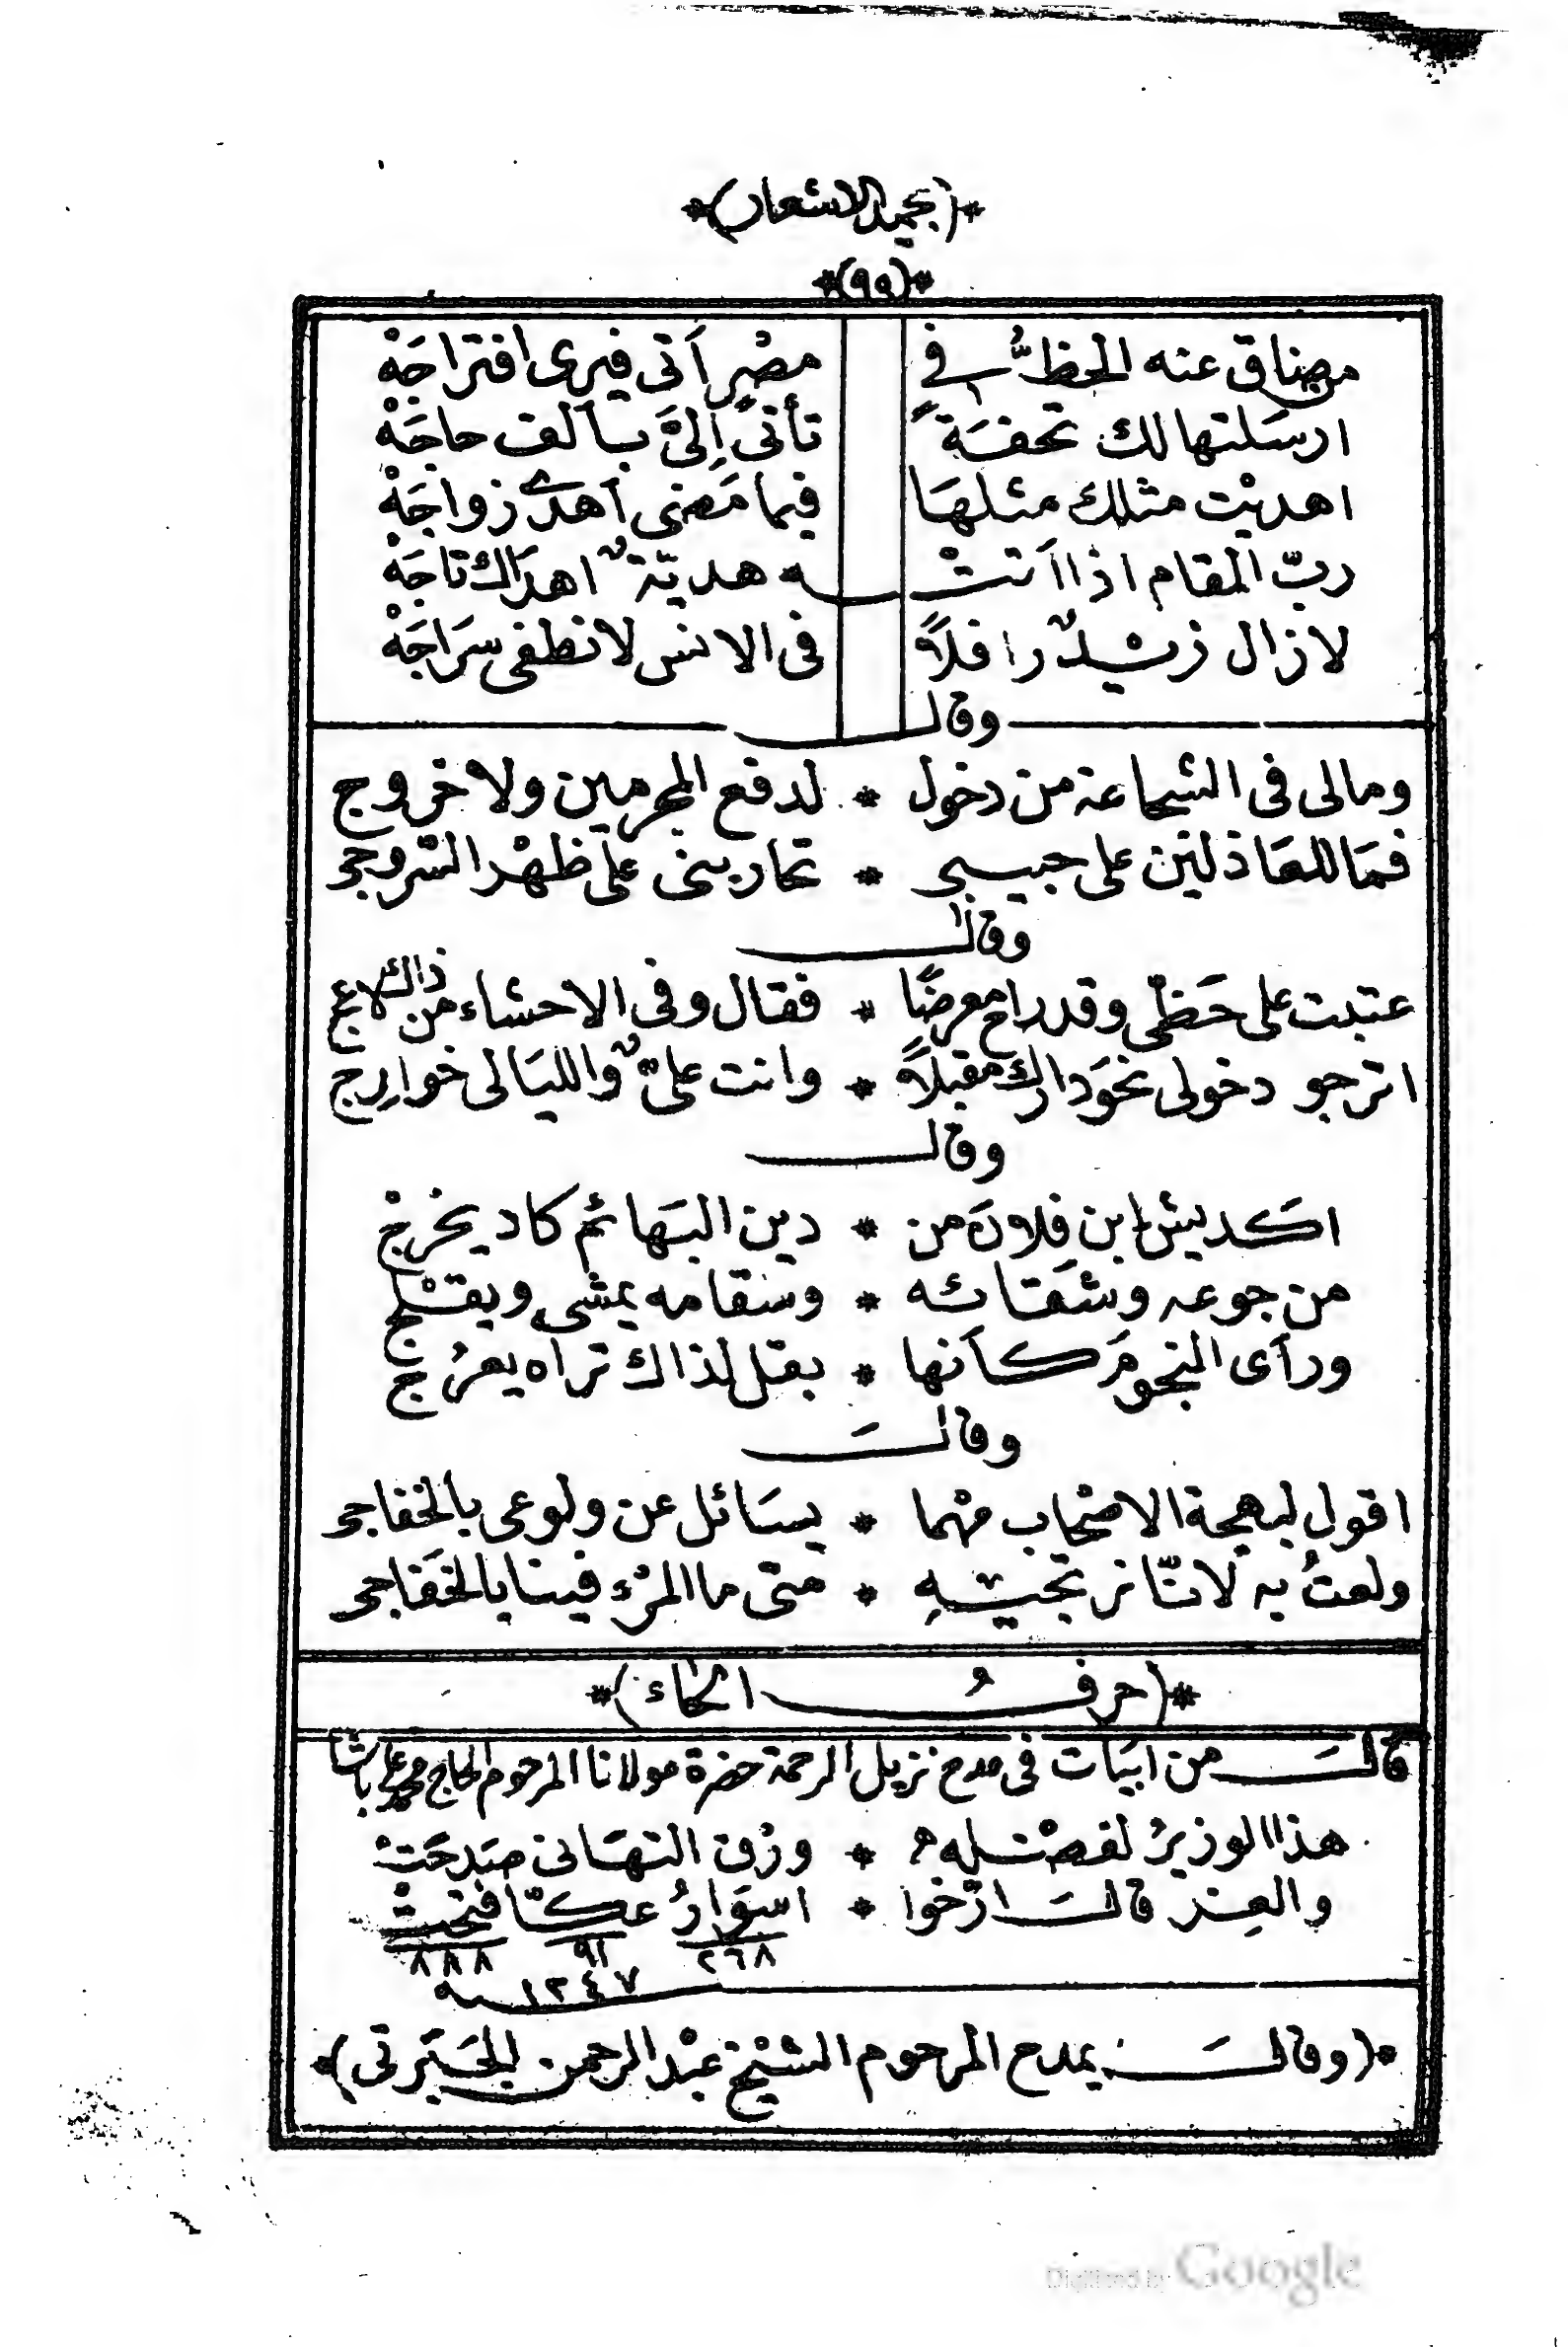 *(بحميد الاشعار)*
*(٩٩)*
من ضاق عنه الحظُّ في مصْرٍ أتى فيرى افتراجَهْ
ارسَلتها لك تحفَةً تأتى إلىَّ بألف حاجَهْ
اهديْت مثلك مثلهَا فيما مَضى أهدى زواجَهْ
ربّ المقام اذا أتتْـه هديّةٌ اهدَاك تاجَهْ
لازال رشيدٌ رافلاً فى الانس لا نطفى سرَاجَهْ
وقال
ومالى فى الشماعة من دخول * لدفع المجرمين ولا خروج
فمَا للعَاذلين على حبيبى * تحاربنى على ظهْر السّروجى
وقال
عتبت على حَظّى وقد راح معرضًا * فقال وفى الاحشاء من ذاك لاعج
اترجو دخولى نحوَ دارك مقبلاً * وانت علىٌّ والليَالى خوارِج
وقال
اكديش ابن فلان من * دين البهَائم كاد يخرُجْ
من جوعه وشقائه * وسقامه يمشى ويفْلج
ورأى النجومَ كأنها * بقل لذاك تراه يعرُج
وقالَ
اقول لبهجة الاصْحاب مهْما * يسَائل عن ولوعى بالخفاجى
ولعتُ به لانّا نرتجيْهِ * متى ما المرْء فينا بالخَفاجى
*(حرفُ الحاء)*
قالَ من ابيَات فى مدح نزيل الرحمة حضرة مولانا المرحوم الحاج محمد على باشا
هذا الوزيرُ لفضْله * ورْق التهَانى صَدحَتْ
والعِـز قالَ ارّخوا * اسوَارُ عكّا فتحتْ
٢٦٨ ٩١ ٨٨٨
سنه ١٢٤٧
*(وقالَ يمدح المرحوم الشيْخ عبْد الرحمن الجَبَرتى)*
Digitized by Google